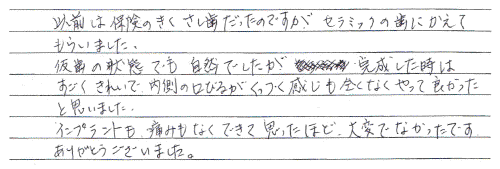 以前は保険のきくさし歯だったのですが、セラミックの歯にかえて
もらいました.
仮歯の状態でも自然でしたが 完成した時は
すごくきれいで、内側の口びるがくっつく感じも全くなくやって良かった
と思いました.
インプラントも、痛みもなくできて思ったほど、大変でなかったです
ありがとうございました。